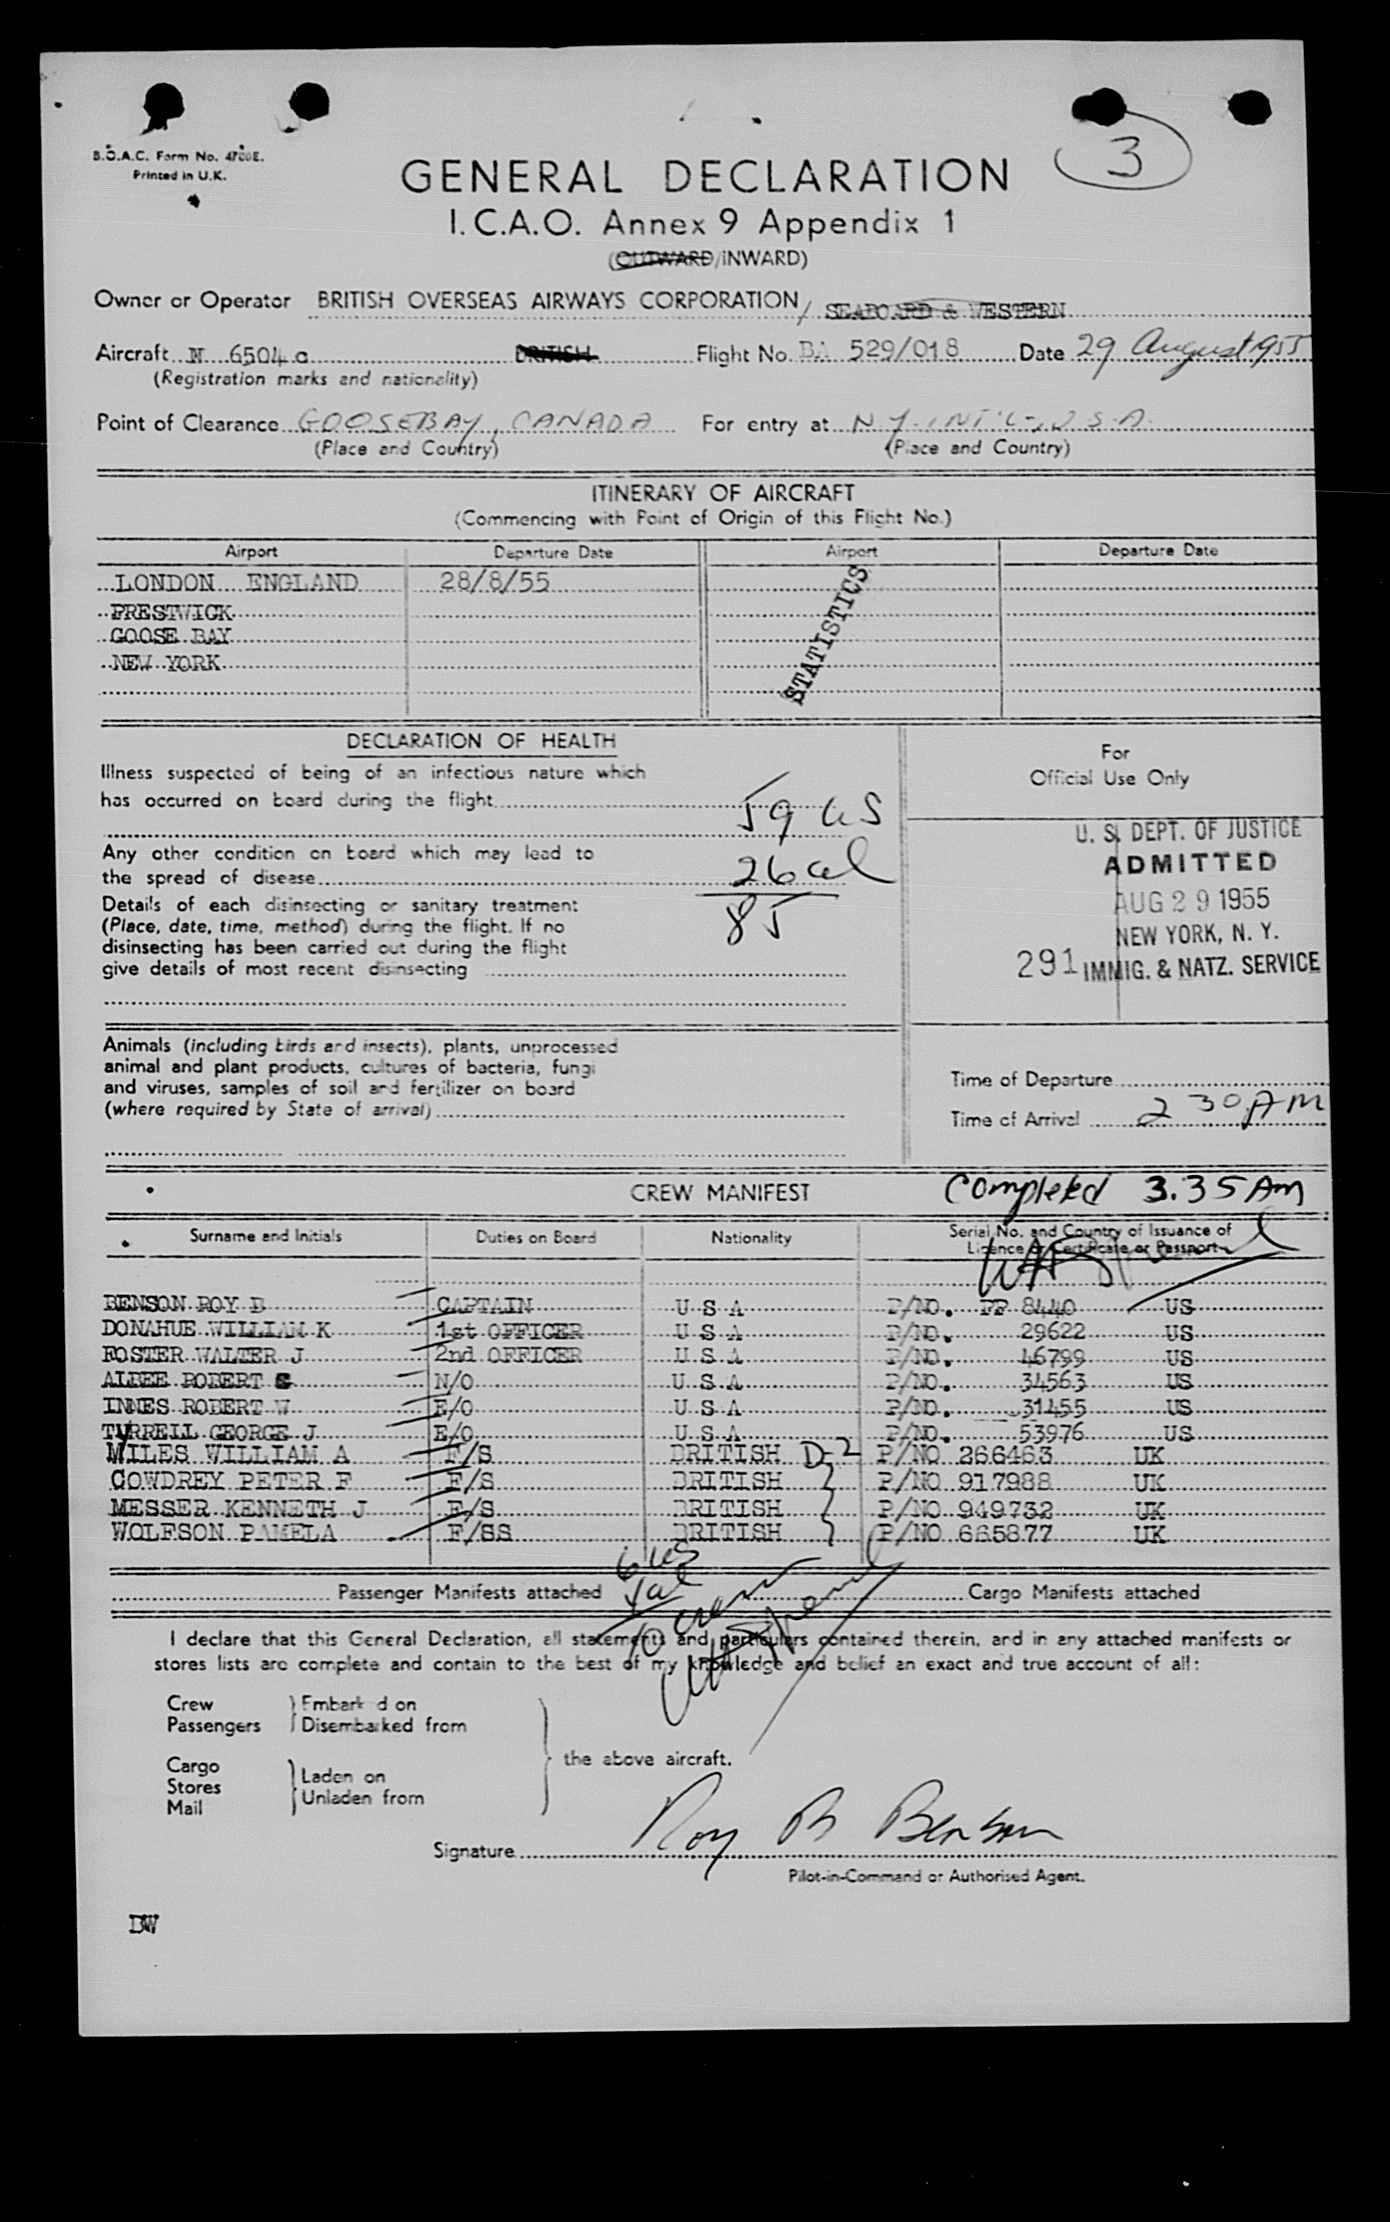 3
B.O.A.C. Form No. 4700E.
Printed in U.K.
GENERAL DECLARATION
I.C.A.O. Annex 9 Appendix 1
(OUTWARD/INWARD)
Owner or Operator BRITISH OVERSEAS AIRWAYS CORPORATION / SEABOARD & WESTERN
Aircraft N 6504 C BRITISH Flight No. BA 529/018 Date 29 August 1955
(Registration marks and nationality)
Point of Clearance GOOSEBAY, CANADA For entry at N.Y. INT'L, U.S.A.
(Place and Country) (Place and Country)
ITINERARY OF AIRCRAFT
(Commencing with Point of Origin of this Flight No.)
Airport Departure Date Airport Departure Date
LONDON ENGLAND 28/8/55
PRESTWICK
GOOSE BAY
NEW YORK
STATISTICS
DECLARATION OF HEALTH
Illness suspected of being of an infectious nature which
has occurred on board during the flight
59 US
Any other condition on board which may lead to
the spread of disease
26 al
85
Details of each disinsecting or sanitary treatment
(Place, date, time, method) during the flight. If no
disinsecting has been carried out during the flight
give details of most recent disinsecting
For
Official Use Only
U. S. DEPT. OF JUSTICE
ADMITTED
AUG 29 1955
NEW YORK, N. Y.
291 IMMIG. & NATZ. SERVICE
Animals (including birds and insects), plants, unprocessed
animal and plant products, cultures of bacteria, fungi
and viruses, samples of soil and fertilizer on board
(where required by State of arrival)
Time of Departure
Time of Arrival 2 30 AM
CREW MANIFEST
Completed 3.35 AM
Surname and Initials Duties on Board Nationality Serial No. and Country of Issuance of
Licence or Certificate or Passport
BENSON ROY B CAPTAIN U S A P/NO. PP 8440 US
DONAHUE WILLIAM K 1st OFFICER U S A P/NO. 29622 US
FOSTER WALTER J 2nd OFFICER U S A P/NO. 46799 US
ALBEE ROBERT S N/O U S A P/NO. 34563 US
INNES ROBERT W E/O U S A P/NO. 31455 US
TYRRELL GEORGE J E/O U S A P/NO. 53976 US
MILES WILLIAM A F/S BRITISH D-2 P/NO 266463 UK
COWDREY PETER F F/S BRITISH P/NO 917988 UK
MESSER KENNETH J F/S BRITISH P/NO 949732 UK
WOLFSON PAMELA F/SS BRITISH P/NO 665877 UK
6 US
4 al
10 crew
Passenger Manifests attached Cargo Manifests attached
I declare that this General Declaration, all statements and particulars contained therein, and in any attached manifests or
stores lists are complete and contain to the best of my knowledge and belief an exact and true account of all:
Crew
Passengers
Embarked on
Disembarked from
Cargo
Stores
Mail
Laden on
Unladen from
the above aircraft.
Signature Roy B Benson
Pilot-in-Command or Authorised Agent.
DW